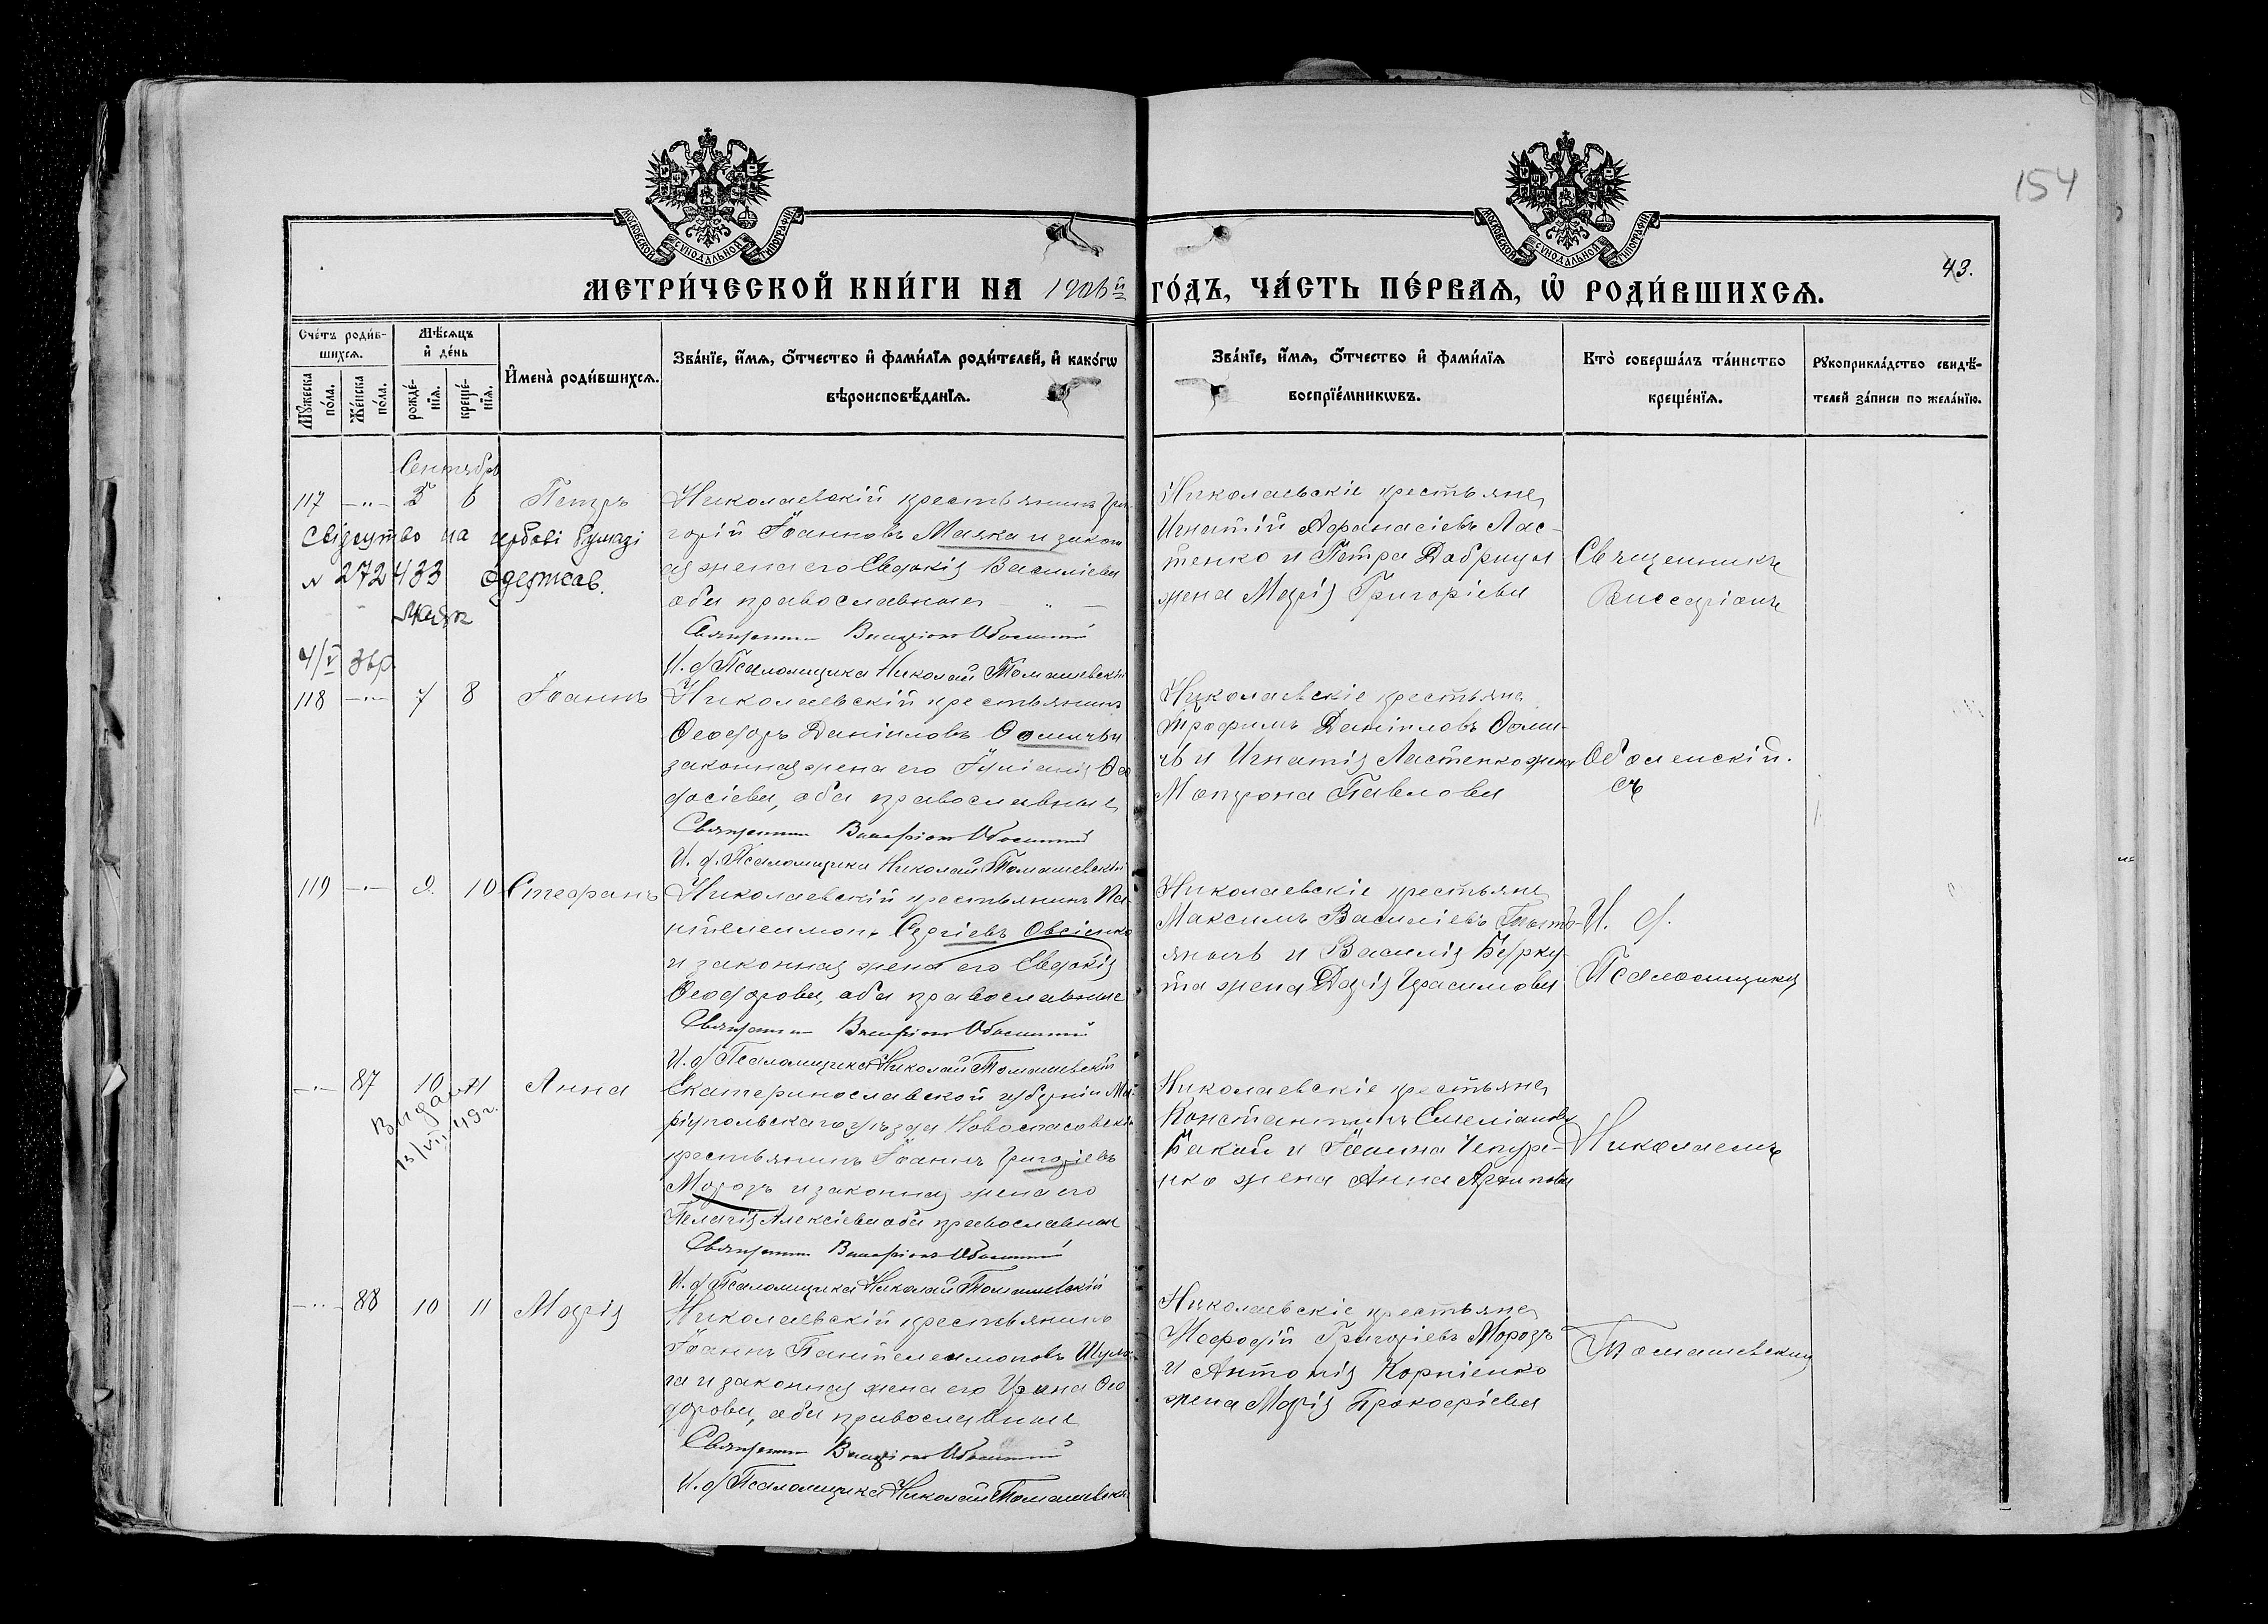 154
43.
МОСКОВСКОЙ СѴНОДАЛЬНОЙ ТИПОГРАФІИ
МОСКОВСКОЙ СѴНОДАЛЬНОЙ ТИПОГРАФІИ
МЕТРИ́ЧЕСКОЙ КНИ́ГИ НА 1906й ГО́ДЪ, ЧА́СТЬ ПЕ́РВАѦ, Ѡ҆ РОДИ́ВШИХСѦ.
Сче́тъ роди́вшихсѧ.
Мꙋ́жеска по́ла.
Же́нска по́ла.
Мѣ́сѧцъ и҆ де́нь
рожде́нїѧ.
креще́нїѧ.
И҆мена̀ роди́вшихсѧ.
Зва́нїе, и҆́мѧ, ѻ҆́тчество и҆ фами́лїѧ роди́телей, и҆ како́гѡ
вѣроисповѣ́данїѧ.
Зва́нїе, и҆́мѧ, ѻ҆́тчество и҆ фами́лїѧ
воспрїе́мникѡвъ.
Кто̀ соверша́лъ та́инство
креще́нїѧ.
Рꙋкоприкла́дство свидѣ́-
телей за́писи по жела́нїю.
Сентябрь
117 -"- 5 6 Петръ
Николаевскій крестьянинъ Гри-
горій Іоанновъ Маяка и закон
ая жена его Евдокія Василіева
оба православные
Священникъ Виссаріонъ Оболенскій
И. д. Псаломщика Николай Томашевскій
Николаевскіе крестьяне
Игнатій Афанасіевъ Лас-
тенко и Петра Добрицы
жена Марія Григоріева
Свідоцтво на гербові бумазі
№ 272433 одержав.
Маяк
4/V 36р
118 -"- 7 8 Іоаннъ
Николаевскій крестьянинъ
Ѳеодоръ Даніиловъ Ѳомичъ и
законная жена его Іуліанія Ѳео
досіева, оба православные
Священникъ Виссаріонъ Оболенскій
И. д. Псаломщика Николай Томашевскій
Николаевскіе крестьяне
Трофимъ Даніиловъ Ѳоми-
чъ и Игнатія Ластенко жена
Матрона Павлова
119 -"- 9 10 Стефанъ
Николаевскій крестьянинъ Пан-
телеимонъ Сергіевъ Овсіенко
и законная жена его Евдокія
Ѳеодорова, оба православные
Священникъ Виссаріонъ Оболенскій
И. д. Псаломщика Николай Томашевскій
Николаевскіе крестьяне
Максимъ Василіевъ
и Василія Берку-
та жена Дарія Герасимова
-"- 87 10 11 Анна
Видан
13/VII 49 г.
Екатеринославской губерніи Ма-
ріупольскаго уѣзда Новоспасовскій
крестьянинъ Іоаннъ Григоріевъ
Морозъ и законная жена его
Пелагія Алексіева оба православные
Священникъ Виссаріонъ Оболенскій
И. д. Псаломщика Николай Томашевскій
Николаевскіе крестьяне
Константинъ Емеліановъ
Бакай и Іоанна Чепурн-
ко жена Анна Архипова
-"- 88 10 11 Марія
Николаевскій крестьянинъ
Іоаннъ Пантелеимоновъ Шуль-
га и законная жена его Ирина Ѳео
дорова, оба православные
Священникъ Виссаріонъ Оболенскій
И. д. Псаломщика Николай Томашевскій
Николаевскіе крестьяне
Меѳодій Григоріевъ Морозъ
и Антонія Корніенко
жена Марія Прокофіева
Священникъ
Виссаріонъ
Оболенскій.
съ
И. д.
Псаломщика
Николаемъ
Томашевскимъ